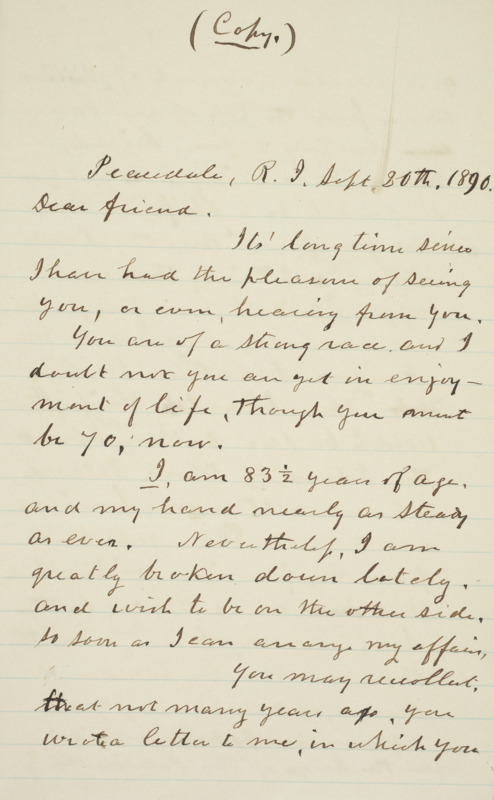 (Copy.)
Peacedale, R. I. Sept 30th. 1890.
Dear friend.
Its' long time since
I have had the pleasure of seeing
you, or even, hearing from you.
You are of a strong race. and I
doubt not you are yet in enjoy-
ment of life, though you must
be 70, now.
I, am 83 1/2 years of age.
and my hand nearly as steady
as ever. Nevertheless, I am
greatly broken down lately.
and wish to be on the other side.
so soon as I can arrange my affairs,
You may recollect.
that not many years ago, you
wrote a letter to me, in which you